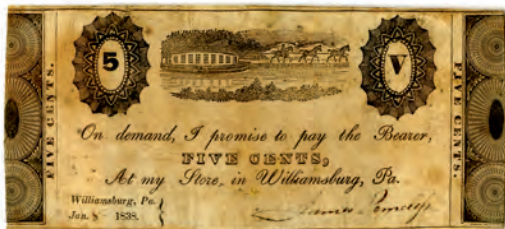 5
V
FIVE CENTS.
FIVE CENTS.
On demand, I promise to pay the Bearer,
FIVE CENTS,
At my Store, in Williamsburg, Pa.
Williamsburg, Pa.
Jan. 8 1838.